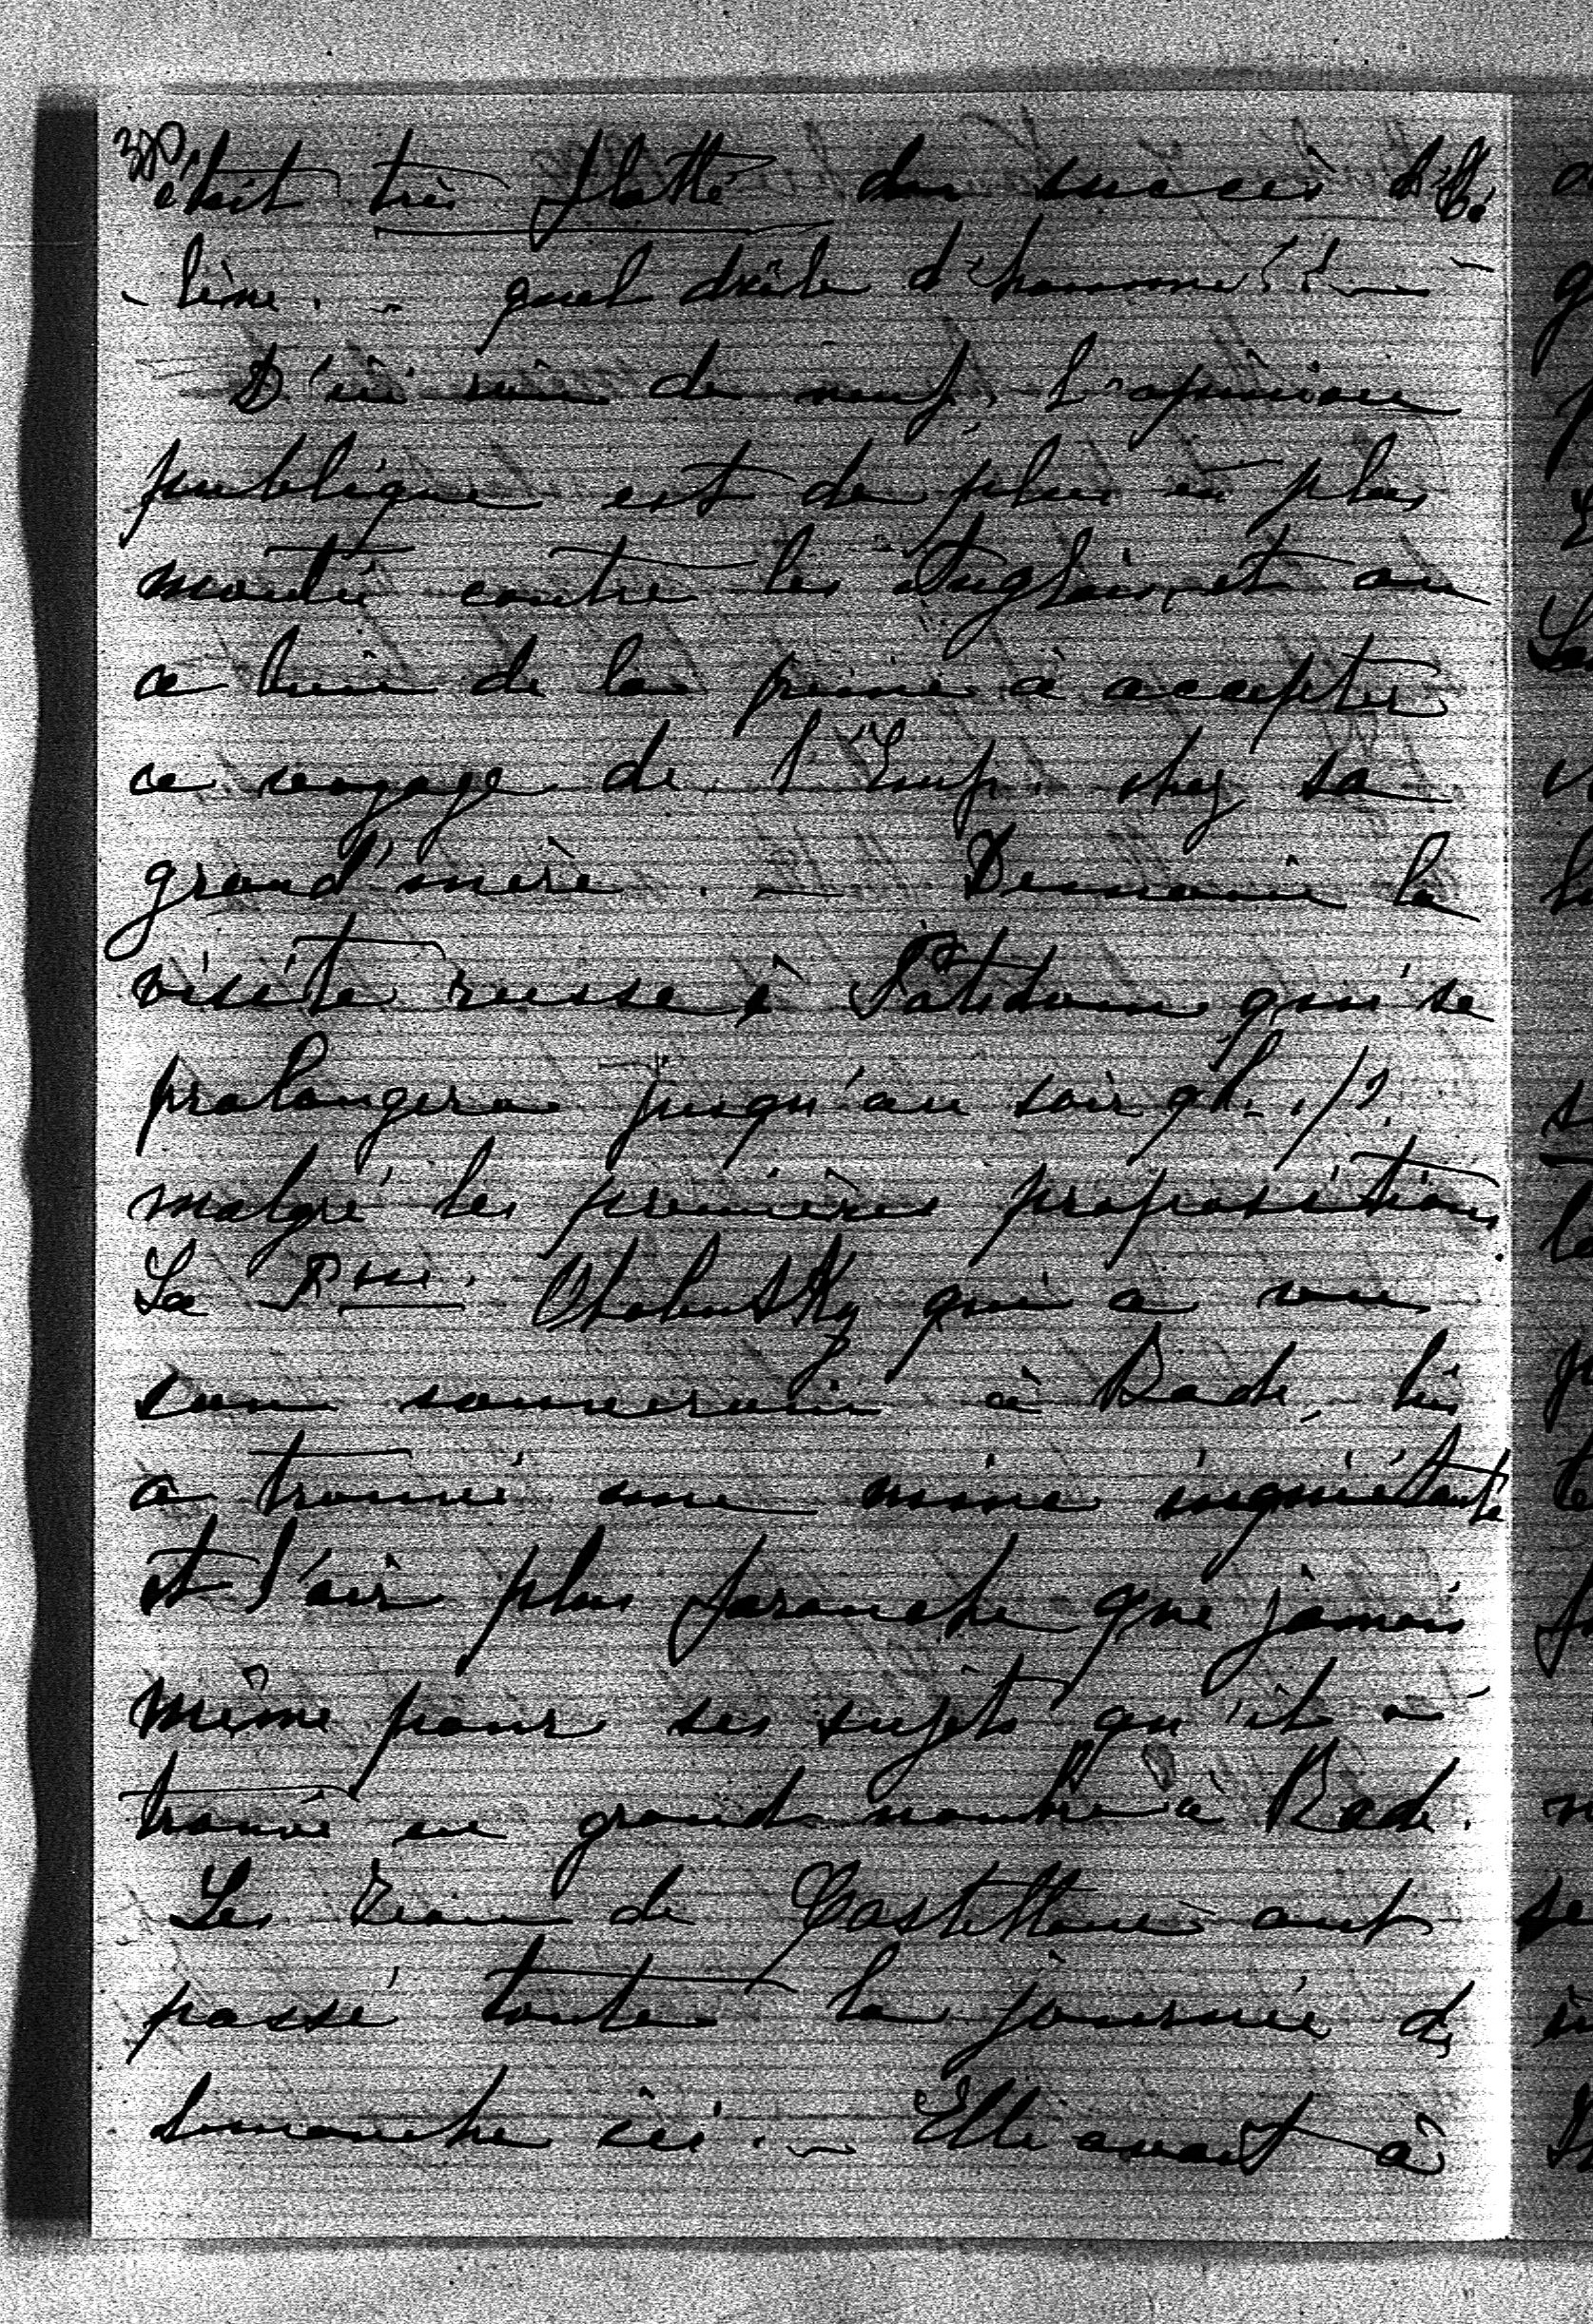 380
était très flatté du succès d'Hé
-lène. - quel drôle d'homme!! -
D'ici rien de neuf, l'opinion
publique est de plus en plus
montée contre les Anglais, et on
a bien de la peine à accepter
ce voyage de l'Emp. chez sa
grand'mère. - Demain la
visite russe à Potsdam qui se
prolongera jusqu'au soir 9h. 1/2.
malgré les premières propositions.
La Psse. qui a vu
son souverain à Bade, lui
a trouvé une mine inquiétante
et l'air plus farouche que jamais
même pour ses sujets qu'il a
trouvé en grand nombre à Bade.
Les de Castellane ont
passé toute la journée de
dimanche ici. - Elle avait à